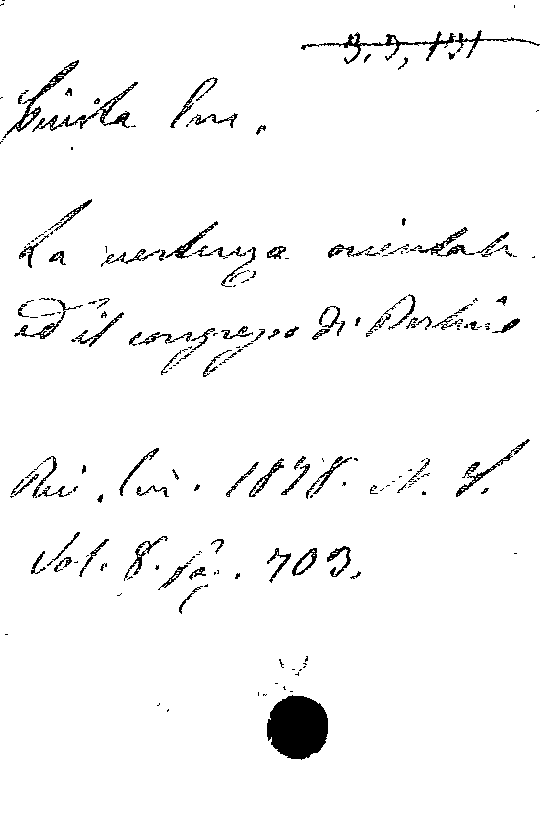 3, 3, 131
La vertenza orientale
ed il congresso di Berlino
Riv. Eur. 1878. N. S.
Vol. 8. pag. 703.